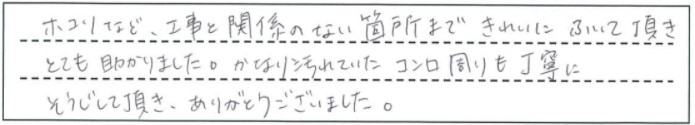 ホコリなど、工事と関係のない箇所まできれいにふいて頂き
とても助かりました。かなり汚れていたコンロ周りも丁寧に
そうじして頂き、ありがとうございました。